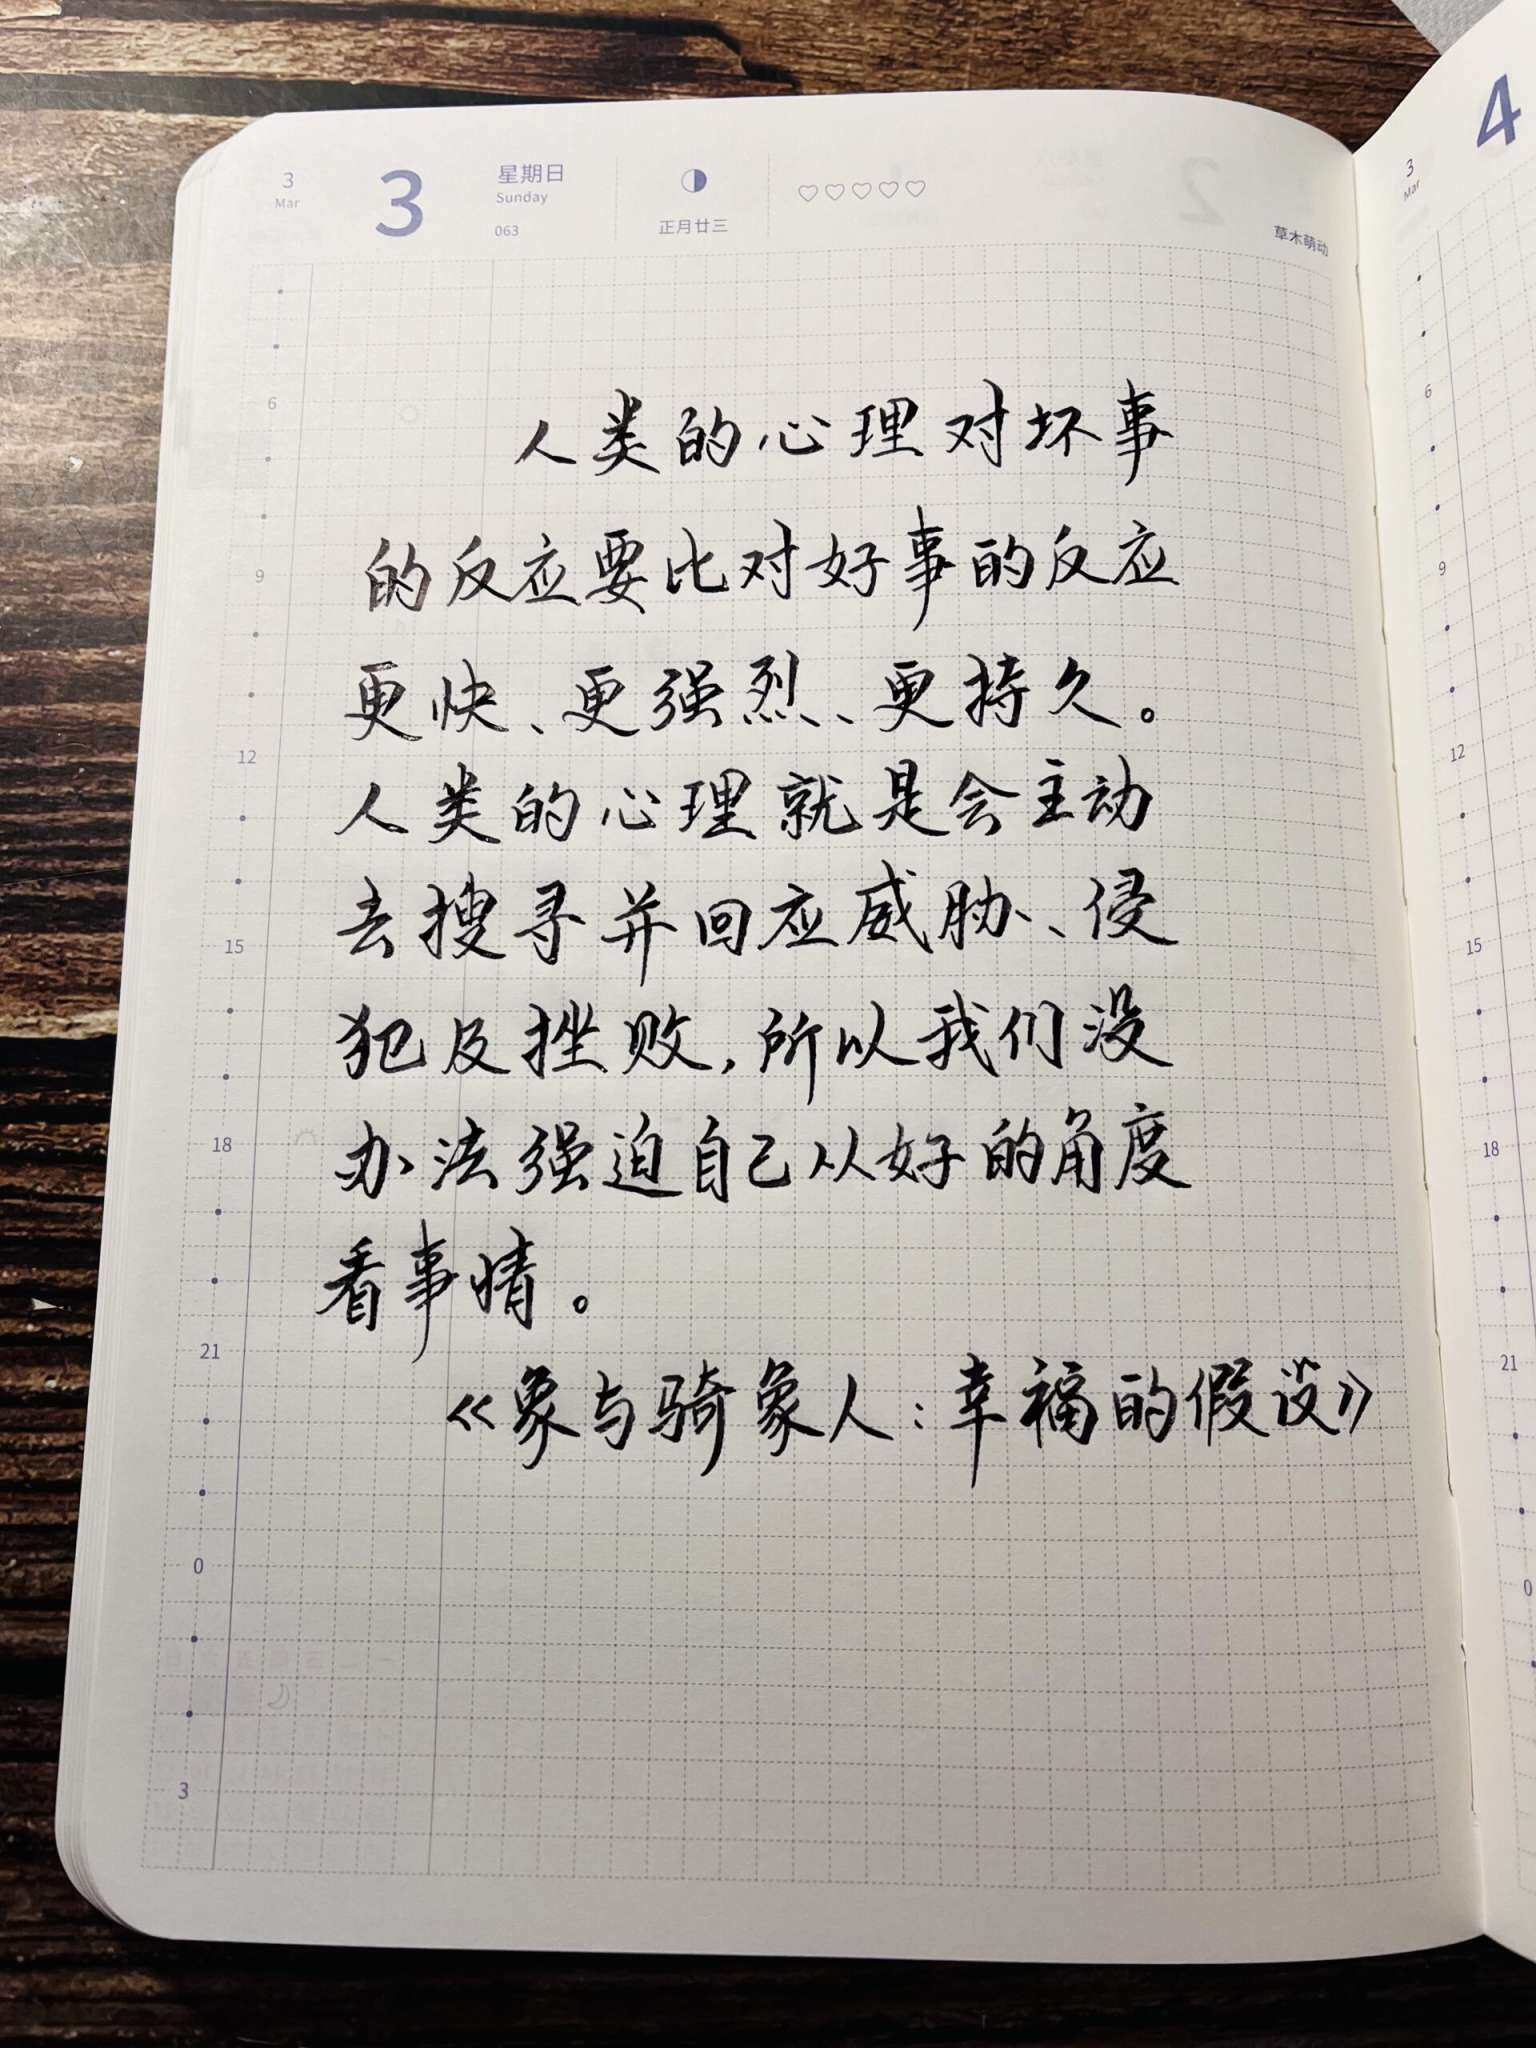 3 Mar
3
星期日
Sunday
063
正月廿三
草木萌动
人类的心理对坏事
的反应要比对好事的反应
更快、更强烈、更持久。
人类的心理就是会主动
去搜寻并回应威胁、侵
犯及挫败,所以我们没
办法强迫自己从好的角度
看事情。
《象与骑象人:幸福的假设》
6
9
12
15
18
21
0
3
3 Mar
4
6
9
12
15
18
21
0